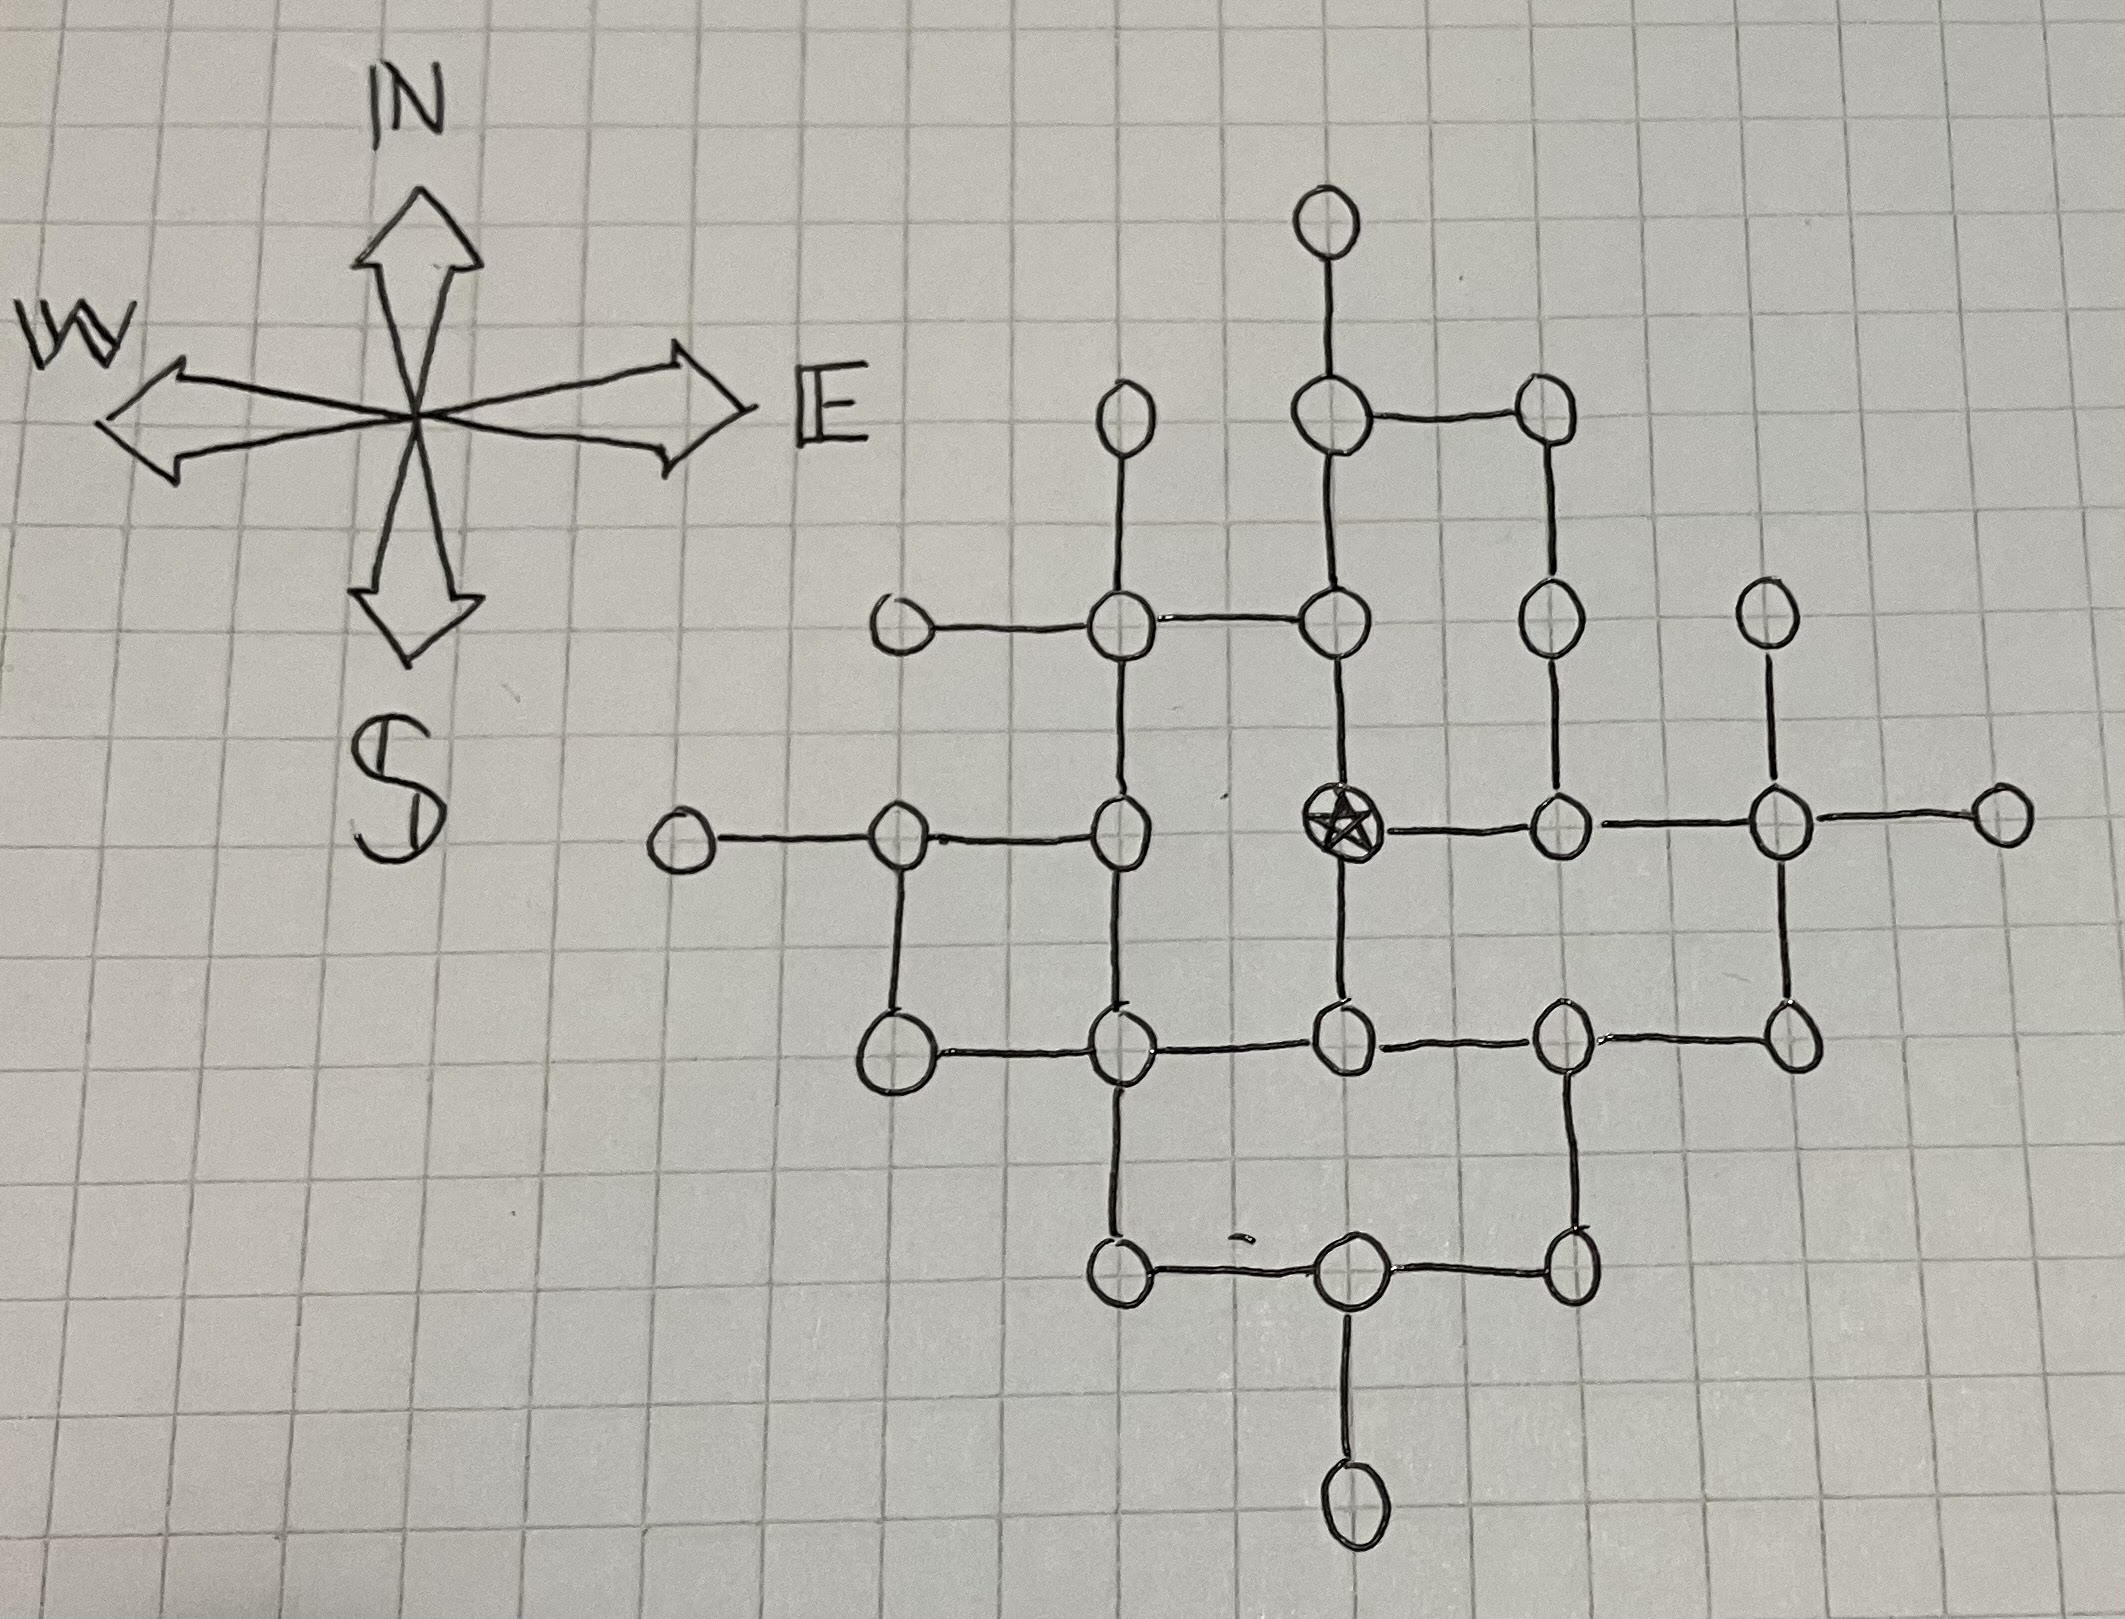 N
W
E
S